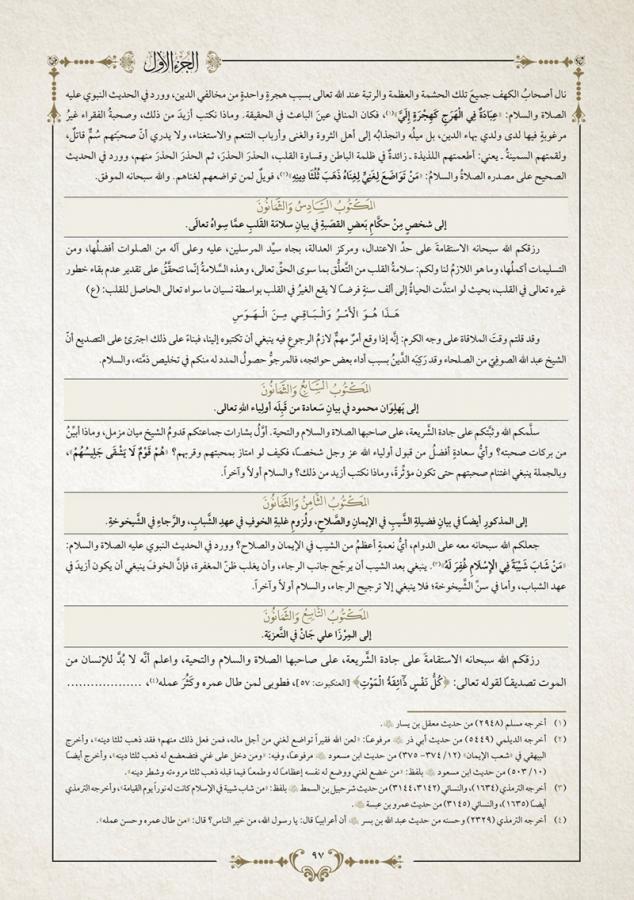 الجزء الأول
نال أصحابُ الكهف جميعَ تلك الحشمة والعظمة والرتبة عند الله تعالى بسبب هجرةٍ واحدةٍ من مخالفي الدين، وورد في الحديث النبوي عليه
الصلاة والسلام: «عِبَادَةٌ فِي الْهَرَجِ كَهِجْرَةٍ إِلَيَّ»(١)، فكان المنافي عينَ الباعث في الحقيقة. وماذا نكتب أزيدَ من ذلك، وصحبةُ الفقراء غيرُ
مرغوبةٍ فيها لدى ولدي بهاء الدين، بل ميلُه وانجذابُه إلى أهل الثروة والغنى وأرباب التنعم والاستغناء، ولا يدري أنّ صحبتَهم سُمٌّ قاتلٌ،
ولقمتهم السمينةُ ـ يعني: أطعمتهم اللذيذة ـ زائدةٌ في ظلمة الباطن وقساوة القلب، الحذرَ الحذرَ، ثم الحذرَ الحذرَ منهم، وورد في الحديث
الصحيح على مصدره الصلاةُ والسلامُ: «مَنْ تَوَاضَعَ لِغَنِيٍّ لِغِنَاهُ ذَهَبَ ثُلُثَا دِينِهِ»(٢)، فويلٌ لمن تواضعهم لغناهم. والله سبحانه الموفق.
المكتوب السادس والثمانون
إلى شخصٍ مِنْ حكَّامِ بَعضِ القصَبةِ في بيانِ سلامَة القَلبِ عمَّا سِواهُ تعالَى.
رزقكم الله سبحانه الاستقامةَ على حدِّ الاعتدال، ومركز العدالة، بجاه سيِّد المرسلين، عليه وعلى آله من الصلوات أفضلُها، ومن
التسليمات أكملُها، وما هو اللازمُ لنا ولكم: سلامةُ القلب من التَّعلُّق بما سوى الحقِّ تعالى، وهذه السَّلامةُ إنَّما تتحقَّقُ على تقدير عدم بقاء خطور
غيره تعالى في القلب، بحيث لو امتدَّت الحياةُ إلى ألف سنةٍ فرضًا لا يقع الغيرُ في القلب بواسطة نسيان ما سواه تعالى الحاصل للقلب: (ع)
هَـذَا هُـوَ الْأَمْـرُ وَالْـبَـاقِـي مِـنَ الْـهَـوَسِ
وقد قلتم وقتَ الملاقاة على وجه الكرم: إنَّه إذا وقع أمرٌ مهمٌّ لازمُ الرجوع فيه ينبغي أن تكتبوه إلينا، فبناءً على ذلك اجترئ على التصديع أنَّ
الشيخ عبد الله الصوفيّ من الصلحاء وقد رَكِبَه الدَّينُ بسبب أداء بعض حوائجه، فالمرجوُّ حصولُ المدد له منكم في تخليص ذمَّته، والسلام.
المكتوب السابع والثمانون
إلى پَهلِوَان محمود في بيانِ سَعادة من قَبِلَه أولِياء اللهِ تعالى.
سلَّمكم الله وثبَّتكم على جادة الشَّريعة، على صاحبها الصلاة والسلام والتحية. أوَّلُ بشارات جماعتكم قدومُ الشيخ ميان مزمل، وماذا أبيِّنُ
من بركات صحبته؟ وأيُّ سعادةٍ أفضلُ من قبول أولياء الله عز وجل شخصًا، فكيف لو امتاز بمحبتهم وقربهم؟ «هُمْ قَوْمٌ لَا يَشْقَى جَلِيسُهُمْ»،
وبالجملة ينبغي اغتنام صحبتهم حتى تكون مؤثِّرةً، وماذا نكتب أزيد من ذلك؟ والسلام أولاً وآخراً.
المكتوب الثامن والثمانون
إلى المذكورِ أيضًا في بيانِ فضيلةِ الشَّيبِ في الإيمانِ والصَّلاحِ، ولُزومِ غلبةِ الخوفِ في عهدِ الشَّبابِ، والرَّجاءِ في الشَّيخوخةِ.
جعلكم الله سبحانه معه على الدوام، أيُّ نعمةٍ أعظمُ من الشيب في الإيمان والصلاح؟ وورد في الحديث النبوي عليه الصلاة والسلام:
«مَنْ شَابَ شَيْبَةً فِي الْإِسْلَامِ غُفِرَ لَهُ»(٣). ينبغي بعد الشيب أن يرجّح جانب الرجاء، وأن يغلب ظنّ المغفرة، فإنَّ الخوفَ ينبغي أن يكون أزيدَ في
عهد الشباب، وأما في سنِّ الشَّيخوخة؛ فلا ينبغي إلا ترجيح الرجاء، والسلام أولاً وآخراً.
المكتوب التاسع والثمانون
إلى المِرْزَا علي جَانْ في التَّعزيَة.
رزقكم الله سبحانه الاستقامةَ على جادة الشَّريعة، على صاحبها الصلاة والسلام والتحية، واعلم أنَّه لا بُدَّ للإنسان من
الموت تصديقًا لقوله تعالى: ﴿كُلُّ نَفْسٍ ذَآئِقَةُ الْمَوْتِ﴾ [العنكبوت: ٥٧]، فطوبى لمن طال عمره وكَثُرَ عمله(٤)، ...................
(١) أخرجه مسلم (٢٩٤٨) من حديث معقل بن يسار ﷺ.
(٢) أخرجه الديلمي (٥٤٤٩) من حديث أبي ذر مرفوعًا: «لعن الله فقيراً تواضع لغني من أجل ماله، فمن فعل ذلك منهم؛ فقد ذهب ثلثا دينه»، وأخرج
البيهقي في «شعب الإيمان» (١٢/ ٣٧٤- ٣٧٥) من حديث ابن مسعود مرفوعًا، وفيه: «ومن دخل على غني فتضعضع له ذهب ثلثا دينه»، وأخرج أيضًا
(١٠/ ٥٠٣) من حديث ابن مسعود بلفظ: «من خضع لغني ووضع له نفسه إعظامًا له وطمعًا فيما قبله ذهب ثلثا مروءته وشطر دينه».
(٣) أخرجه الترمذي (١٦٣٤)، والنسائي (٣١٤٢، ٣١٤٤) من حديث شرحبيل بن السمط بلفظ: «من شاب شيبة في الإسلام كانت له نوراً يوم القيامة»، وأخرجه الترمذي
أيضًا (١٦٣٥)، والنسائي (٣١٤٥) من حديث عمرو بن عبسة.
(٤) أخرجه الترمذي (٢٣٢٩) وحسنه من حديث عبد الله بن بسر أن أعرابيًا قال: يا رسول الله، من خير الناس؟ قال: «من طال عمره وحسن عمله».
٩٧